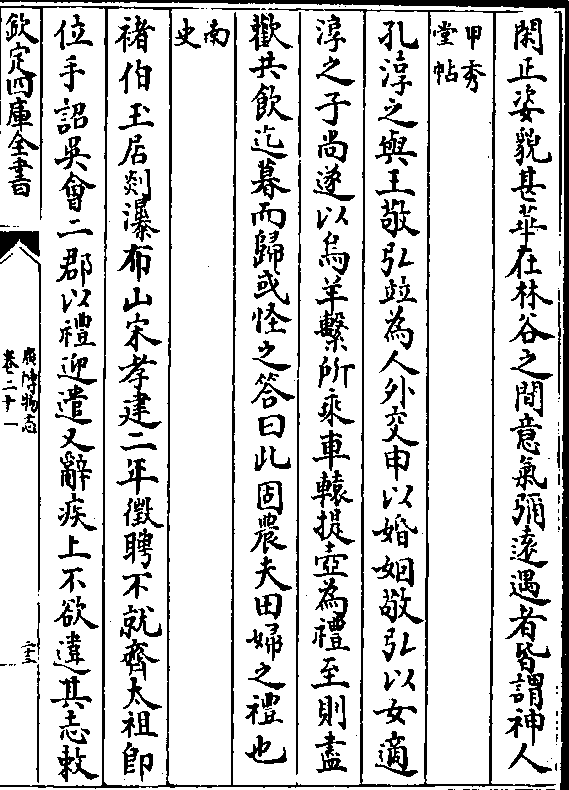 閑正姿貌甚華在林谷之間意氣彌逺遇者皆謂神人
甲秀
堂帖
孔淳之與王敬弘竝為人外交申以婚姻敬弘以女適
淳之子尚遂以烏羊繫所乘車轅提壺為禮至則盡
歡共飲迄暮而歸或怪之答曰此固農夫田婦之禮也
南
史
褚伯玉居剡瀑布山宋孝建二年徵聘不就齊太祖即
位手詔吳會二郡以禮迎遣又辭疾上不欲違其志敕
欽定四庫全書
廣博物志
卷二十一
二十三